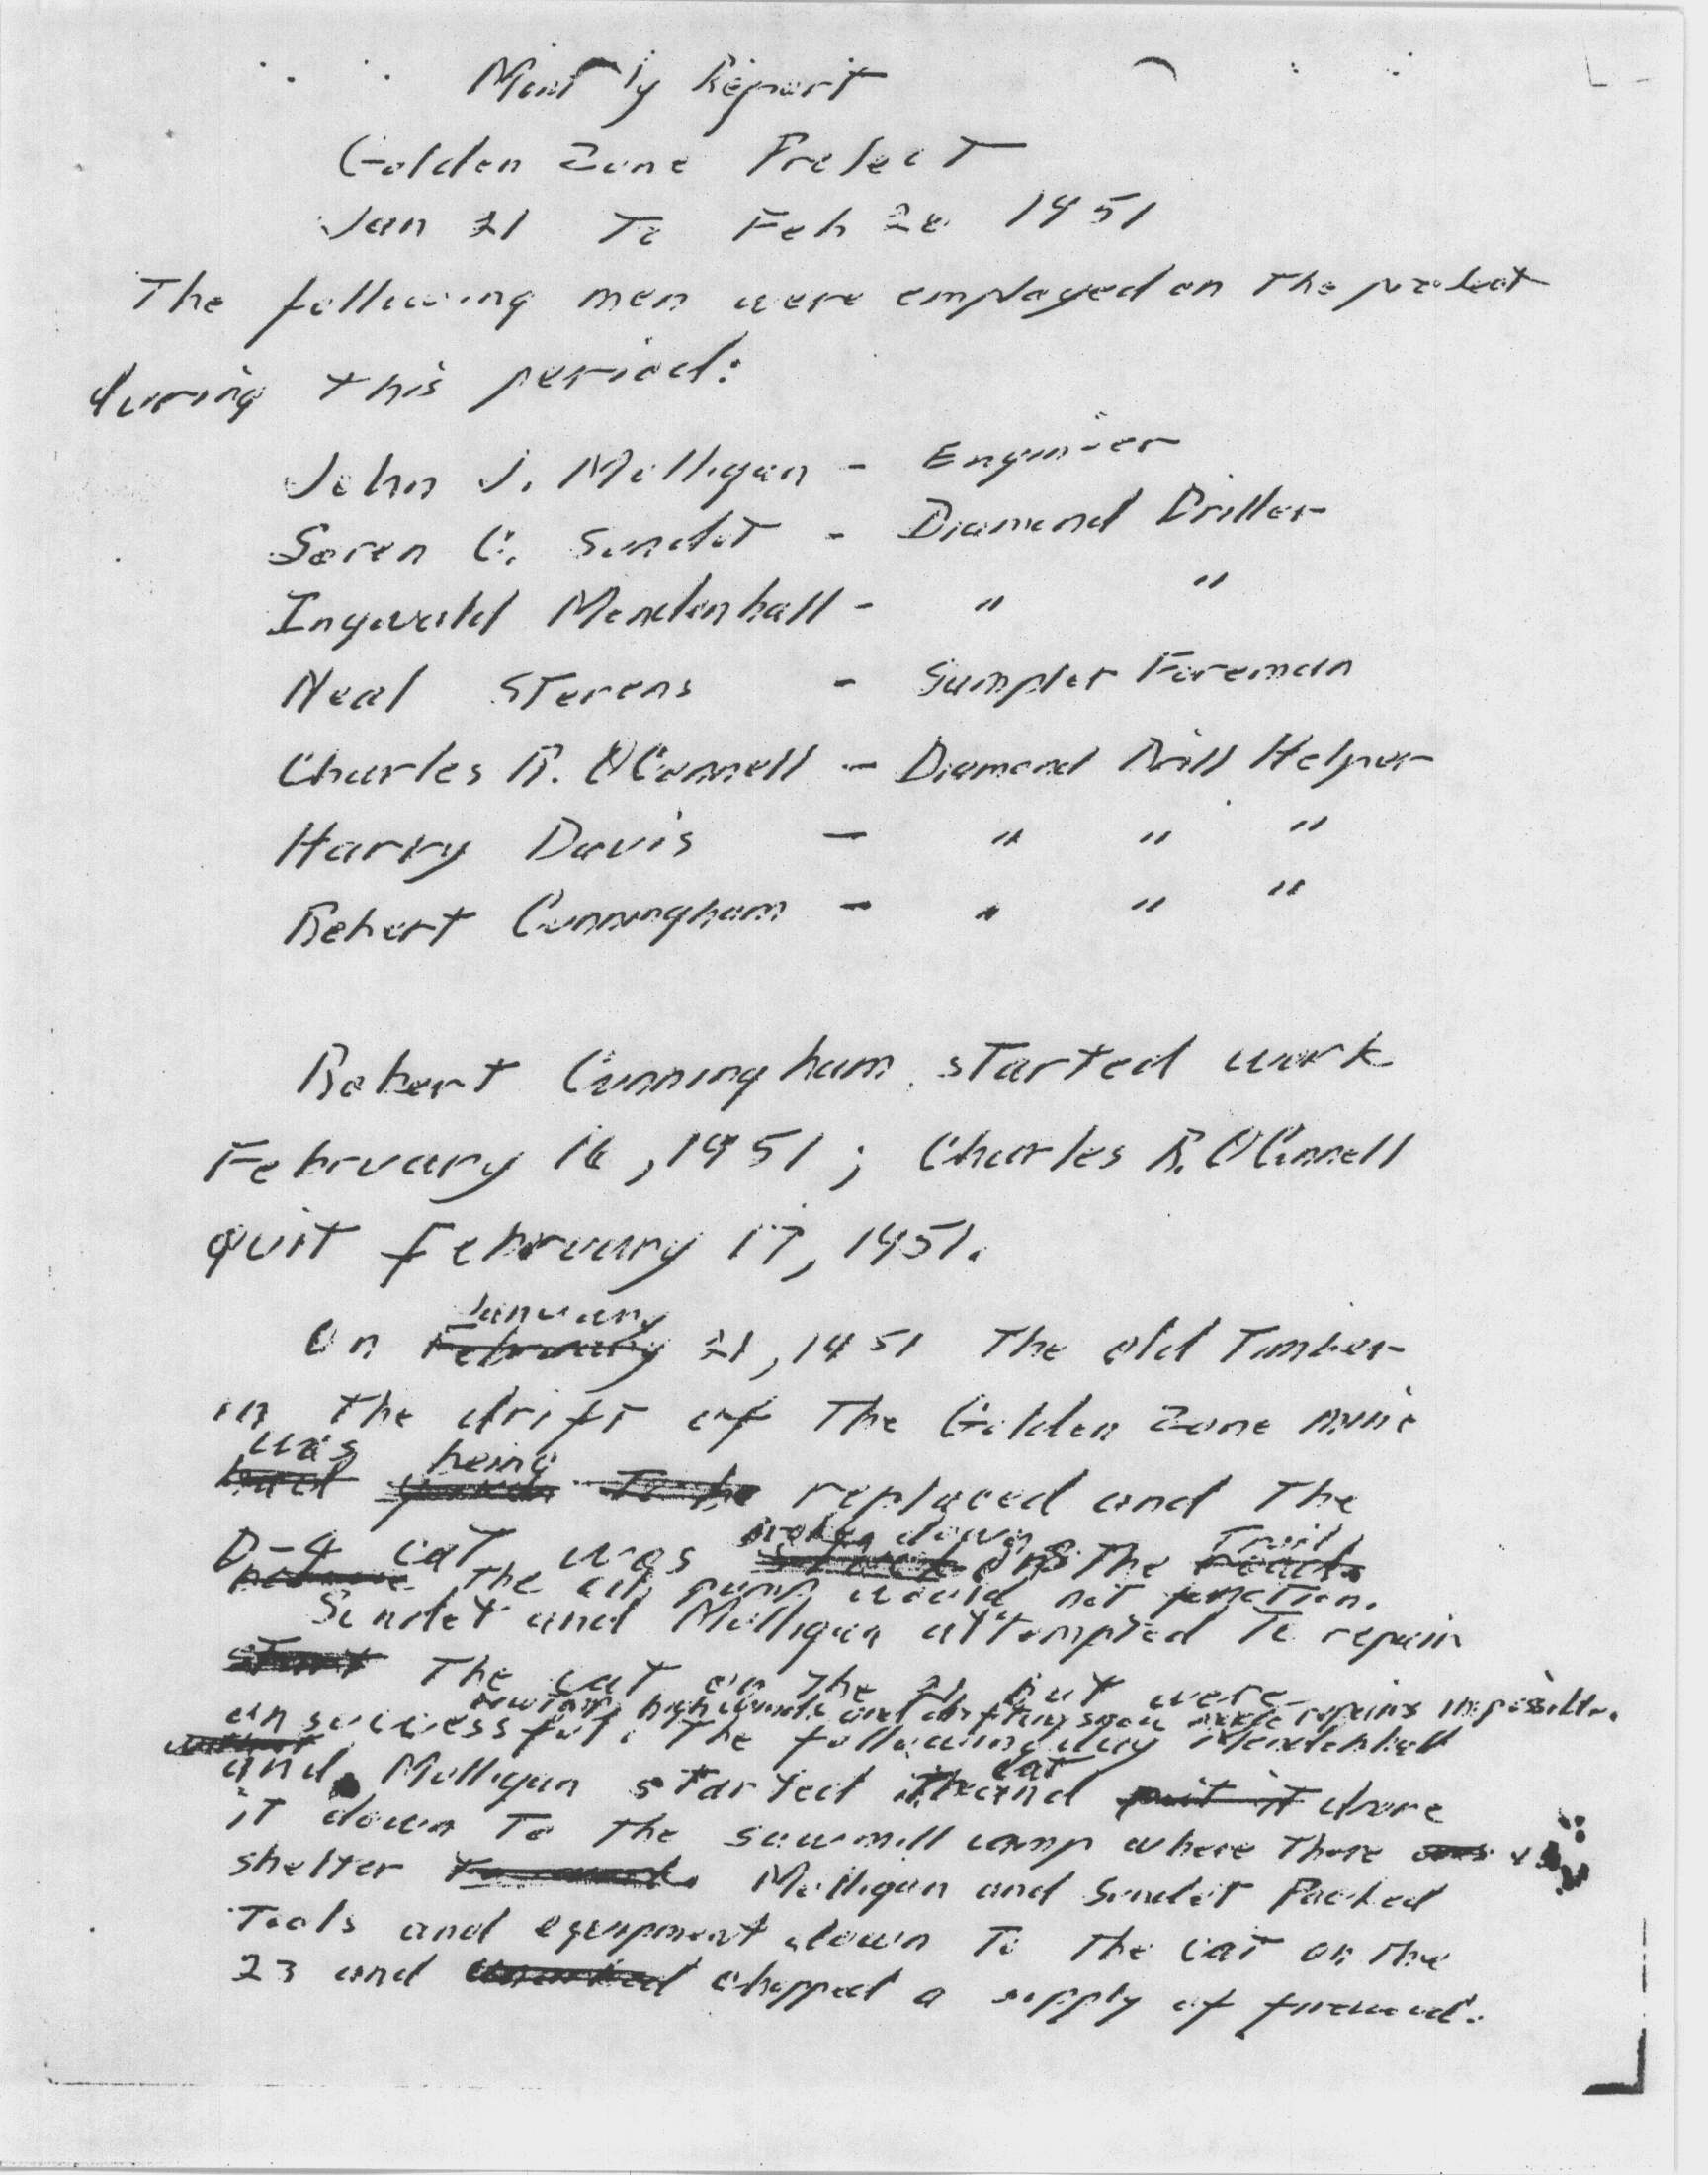 Montly Report
Golden Zone Project
Jan 21 To Feb 20 1951
The following men were employed on The project
during this period:
John J. Mulligan - Engineer
Soren C. Sundet - Diamond Driller
Ingwald Mendenhall - " "
Neal Stevens - Sampler Foreman
Charles R. O'Connell - Diamond Drill Helper
Harry Davis - " " "
Robert Cunningham - " " "
Robert Cunningham started work
February 16, 1951; Charles R. O'Connell
quit February 17, 1951.
January
On February 21, 1951 The old Timber
in the drift of The Golden Zone mine
was being
had to be replaced and The
broken down Trail
D-4 cat was on The roads
because The air pump would not function.
Sundet and Mulligan attempted To repair
start The cat on The 21 but were
low Temp, high winds and drifting snow made repairs impossible.
unsuccessful. The following day Mendenhall
cat
and Mulligan started The and put it drove
it down To The sawmill camp where There was
shelter to work. Mulligan and Sundet Packed
Tools and equipment down To The cat on The
23 and chopped a supply of firewood.